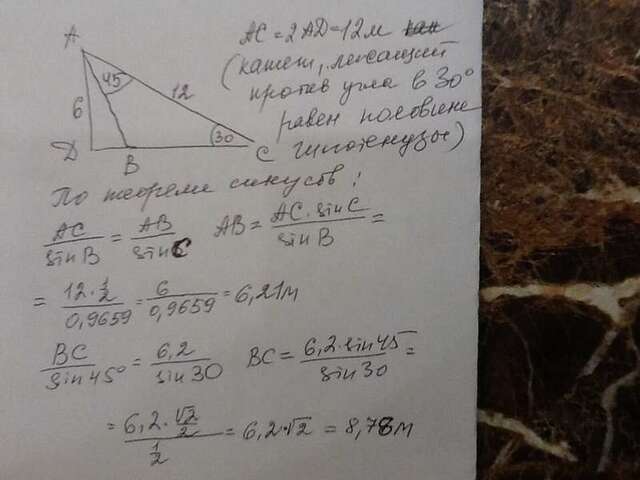 AC = 2AD = 12м
(катет, лежащий
против угла в 30°
равен половине
гипотенузы)
A
45
12
6
30
D
B
C
По теореме синусов:
AC/sin B = AB/sin C   AB = AC·sin C/sin B =
= 12·1/2/0,9659 = 6/0,9659 = 6,21м
BC/sin 45° = 6,2/sin 30   BC = 6,2·sin 45/sin 30 =
= 6,2·√2/2/1/2 = 6,2·√2 = 8,78м